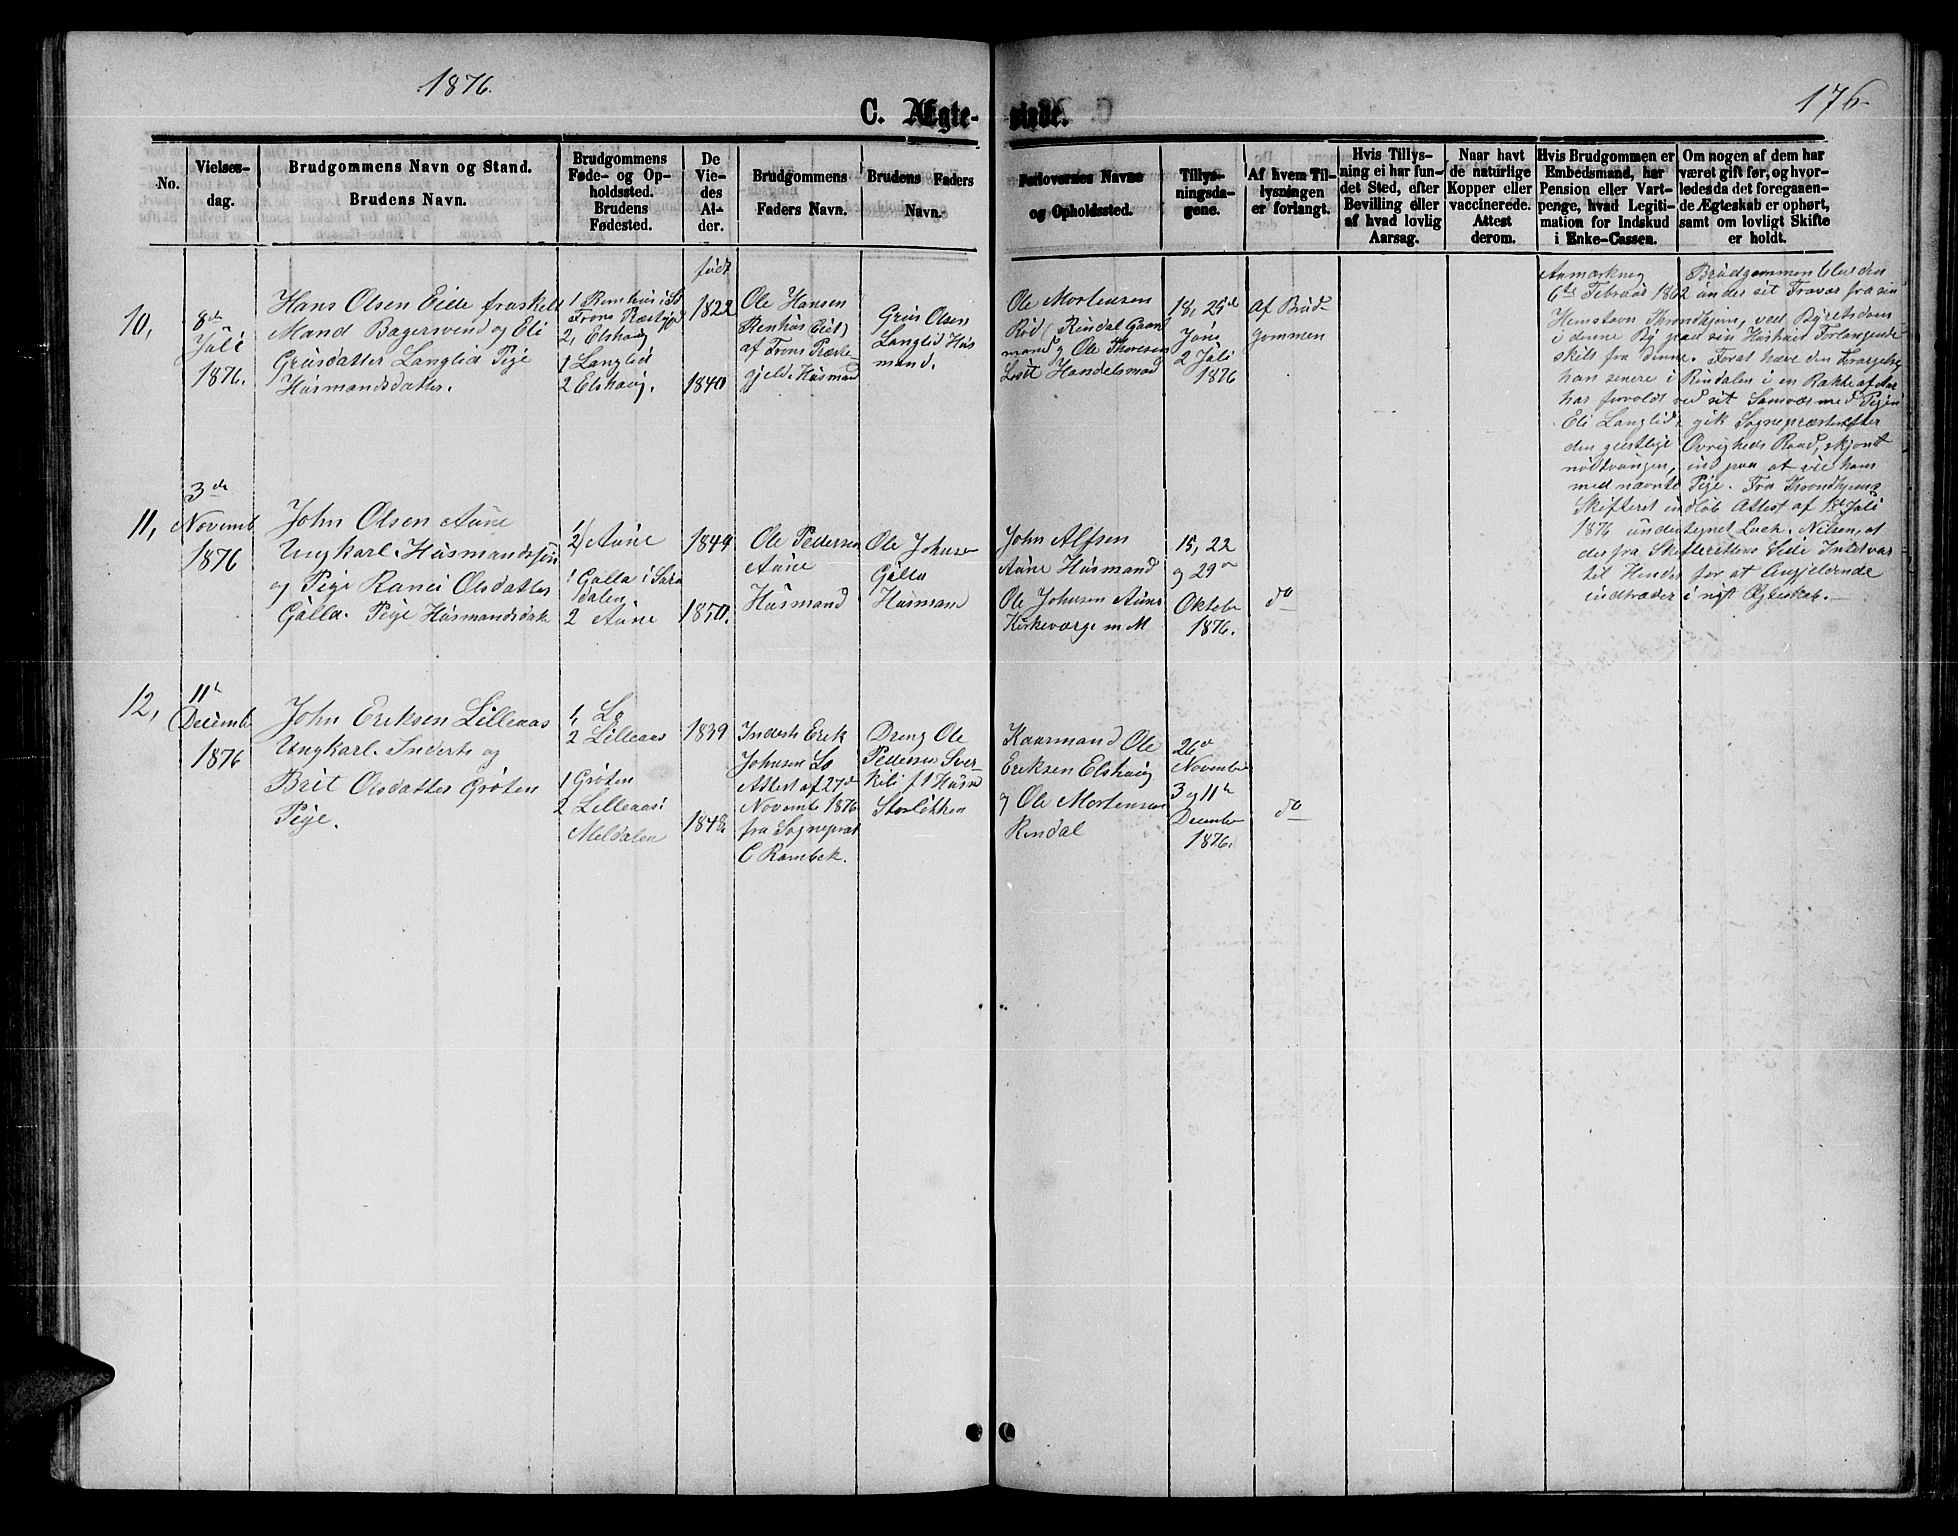 1876.
176.
C. Ægte-
viede.
No.
Vielses-
dag.
Brudgommens Navn og Stand.
Brudens Navn.
Brudgommens
Føde- og Op-
holdssted.
Brudens
Fødested.
De
Vie-
des
Al-
der.
Brudgommens
Faders Navn.
Brudens Faders
Navn.
Forlovernes Navne
og Opholdssted.
Tillys-
ningsda-
gene.
Af hvem Til-
lysningen
er forlangt.
Hvis Tillys-
ning ei har fun-
det Sted, efter
Bevilling eller
af hvad lovlig
Aarsag.
Naar havt
de naturlige
Kopper eller
vaccinerede.
Attest
derom.
Hvis Brudgommen er
Embedsmand, har
Pension eller Vart-
penge, hvad Legiti-
mation for Indskud
i Enke-Cassen.
Om nogen af dem har
været gift før, og hvor-
ledes da det foregaaen-
de Ægteskab er ophørt,
samt om lovligt Skifte
er holdt.
10,
8de
Juli
1876.
Hans Olsen Eide fraskilt
Mand Bagersvend og Eli
Grusdatter Langlid Pige
Husmandsdatter.
1 Renhus i
Frons Præstgjd
2, Elshaug
1 Langlid
2 Elshaug.
født
1822
1840
Ole Hansen
Renhus (Eiet)
af Frons Præste
gjeld. Husmand
Grus Olsen
Langlid Hus
mand.
Ole Mortensen
Rød (Rindal Gaard
mand og Ole Thoresen
Handelsmand
18, 25de
Juni
2 Juli
1876
Af Brud
gommen
Anmærkning Brudgommen blev den
6te Februar 1862 under sit Fravær fra sin
Hemstavn Throndhjem, ved Byretsdom
i denne By paa sin Hustrues Forlangende
skilt fra Denne. Forat hæve den Forargelse
han senere i Rindalen i en Række af Aar
har forvoldt ved sit Samvær med Pigen
Eli Langlid, gik Sognepræsten efter
den geistlige Øvrigheds Raad, skjønt
nødtvungen, ind paa at vie ham
med nævnte Pige. Fra Throndhjems
Skifteret indløb Attest af 1ste Juli
1876 undertegnet Loch. Nilsen, at
der fra Skifterettens Side Intet var
til Hinder for at Angjeldende
indtræder i nyt Ægteskab.
11,
3de
Novemb
1876
John Olsen Aune
Ungkarl. Husmandssøn
og Pige Ranei Olsdatter
Gulla. Pige Husmandsdatr
1/
2/ Aune
1 Gulla i Sura
dalen
2 Aune
1849
1850.
Ole Pedersen
Aune
Husmand
Ole Johnse
Gulla
Husmand
John Alfsen
Aune Husmand
Ole Johnsen Aune
Kirkeværge m M
15, 22
og 29de
Oktober
1876.
do
12,
11te
Decemb
1876
John Eriksen Lilleaas
Ungkarl. Inderste og
Brit Olsdatter Grøten
Pige.
1, Lo
2 Lilleaas
1 Grøten
2 Lilleaas i
Meldalen
1839
1848.
Inderste Erik
Johnsen Lo
Attest af 27de
Novembe 1876
fra Sognepræst
C Rambek.
Dreng Ole
Pedersen Sver
kili f t Husm
Storløkken
Kaarmand Ole
Eriksen Elshaug
og Ole Mortensen
Rindal
26de
November
3 og 11te
December
1876.
do